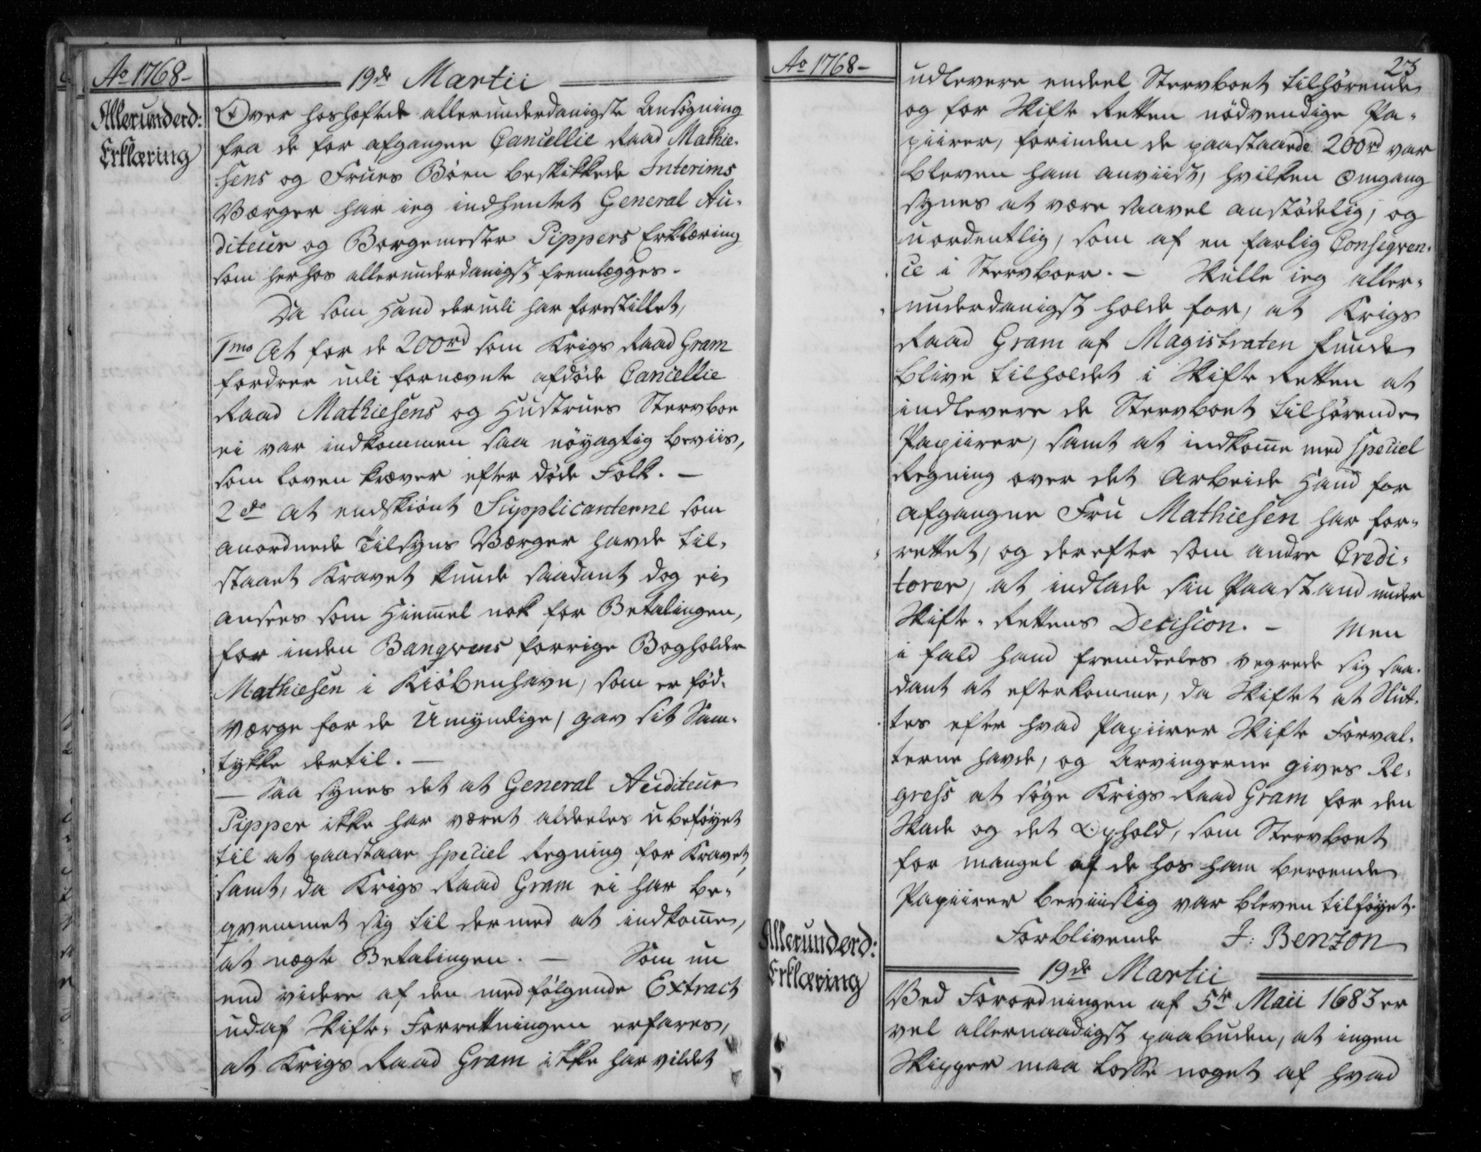 Ao 1768-
19de Martii
Allerunderd:
Erklæring
Over hoshæftede allerunderdanigste Ansøgning
fra de for afgangne Cancellie Raad Mathie-
sens og Frues Børn beskikkede Interims
Værger har ieg indhentet General Au-
diteur og Borgemester Pippers Erklæring
som herhos allerunderdanigst fremlægges.
Da som Hand derudi har forestillet,
1mo At for de 200rd som Krigs Raad Gram
fordrer udi fornævnte afdøde Cancellie
Raad Mathiesens og Hustrues Stervboe
ei var indkommen saa nöyagtig beviis,
som Loven kræver efter døde Folk. -
2do At endskiönt Supplicanterne som
anordnede Tilsyns Værger havde til-
staaet Kravet kunde saadant dog ei
ansees som Hiemmel nok for Betalingen,
for inden Banqvens forrige Bogholder
Mathiesen i Kiöbenhavn, som er fød-
Værge for de Umyndige, gav sit Sam-
tykke dertil. -
- Saa synes det at General Auditeur
Pipper ikke har været aldeeles ubeföyet
til at paastaae speciel Regning for Kravet,
samt, da Krigs Raad Gram ei har be-
qvemmet sig til dermed at indkomme,
at nægte Betalingen. - Som nu
end videre af den medfölgende Extract
udaf Skifte-Forretningen erfares,
at Krigs Raad Gram ikke har vildet
Ao 1768-
23
udlevere endeel Stervboet tilhørende
og for Skifte Retten nödvendige Pa-
piirer, forinden de paastaaede 200rd var
bleven ham anviist, hvilken omgang
synes at være saavel anstödelig, og
uordentlig, som af en farlig Conseqven-
ce i Stervboer. - Skulle ieg aller-
underdanigst holde for, at Krigs
Raad Gram af Magistraten kunde
blive tilholdet i Skifte Retten at
indlevere de Stervboet tilhørende
Papiirer, samt at indkomme med speciel
Regning over det Arbeide Hand for
afgangne Fru Mathiesen har for-
rettet, og derefter som andre Credi-
torer, at indlade sin Paastand under
Skifte-Rettens Decision. - Men
i fald hand fremdeeles vegrede sig saa-
dant at efterkomme, da Skiftet at Slut-
tes efter hvad Papiirer Skifte Forval-
terne havde, og Arvingerne gives Re-
gress at söge Krigs Raad Gram for den
Skade og det Ophold, som Stervboet
for mangel af de hos ham beroende
Papiirer beviislig var bleven tilföyet.
Forblivende J: Benzon
19de Martii
Allerunderd:
Erklæring
Ved Forordningen af 5te Maii 1683 er
vel allernaadigst paabuden, at ingen
Skipper maa losse noget af hvad